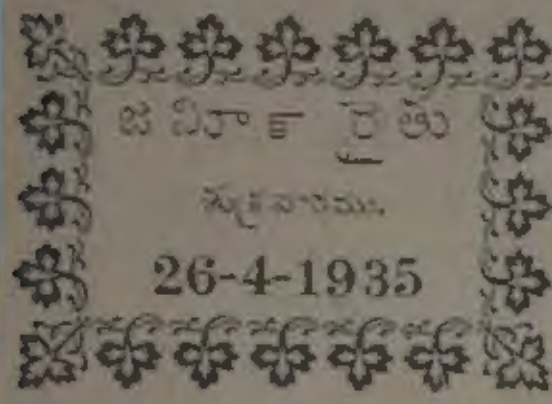 జమీన్ రైతు
శుక్రవారము.
26-4-1935